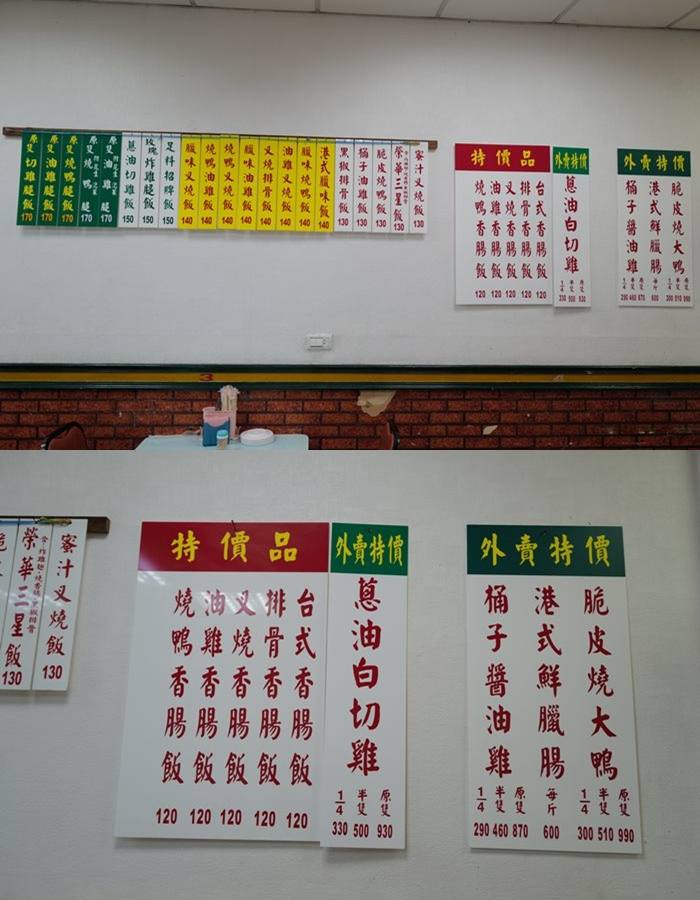 蜜汁叉燒飯
130
榮華三星飯
130
脆皮燒鴨飯
130
桶子油雞飯
130
黑椒排骨飯
130
港式臘味飯
140
臘味燒鴨飯
140
油雞叉燒飯
140
叉燒排骨飯
140
臘味油雞飯
140
燒鴨叉燒飯
140
燒鴨油雞飯
140
臘味叉燒飯
140
足料招牌飯
150
玫瑰炸雞腿飯
150
蔥油切雞飯
150
原隻油雞腿
170
原隻燒鴨腿
170
原隻燒鴨腿飯
170
原隻油雞腿飯
170
原隻切雞腿飯
170
特價品
台式香腸飯
排骨香腸飯
叉燒香腸飯
油雞香腸飯
燒鴨香腸飯
120 120 120 120 120
外賣特價
蔥油白切雞
1/4 半隻 原隻
330 500 930
外賣特價
脆皮燒大鴨
港式鮮臘腸
桶子醬油雞
1/4 半隻 原隻 每斤 1/4 半隻 原隻
290 460 870 600 300 510 990
3
蜜汁叉燒飯
130
榮華三星飯
含:炸雞翅、燒香腸、黑椒排骨
130
特價品
台式香腸飯
排骨香腸飯
叉燒香腸飯
油雞香腸飯
燒鴨香腸飯
120 120 120 120 120
外賣特價
蔥油白切雞
1/4 半隻 原隻
330 500 930
外賣特價
脆皮燒大鴨
港式鮮臘腸
桶子醬油雞
1/4 半隻 原隻 每斤 1/4 半隻 原隻
290 460 870 600 300 510 990